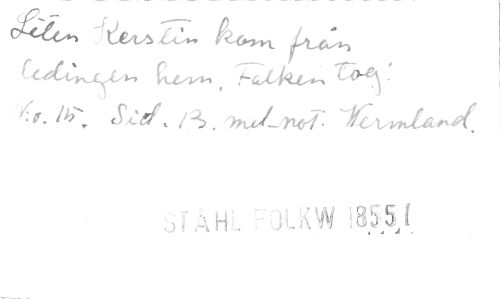 Liten Kerstin kom från
ledingen hem, Falken tog:
N:o. 15. Sid. 13. mel-not. Wermland.
STÅHL FOLKW 18551